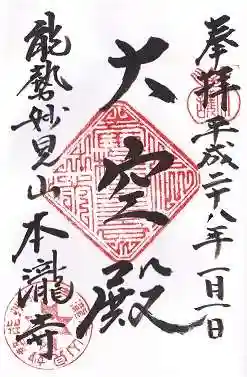 奉拝 平成二十八年一月一日
大空殿
能勢妙見山 本瀧寺